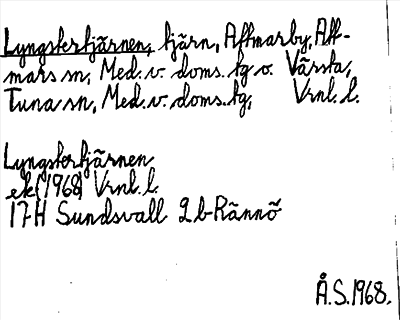 Lyngstertjärnen, tjärn, Attmarby, Att-
mars sn, Med. v. doms. tg o. Värsta,
Tuna sn, Med. v. doms. tg, Vrnl. l.
Lyngstertjärnen
ek (1968) Vrnl. l.
17H Sundsvall 2b Rännö
Å.S. 1968.